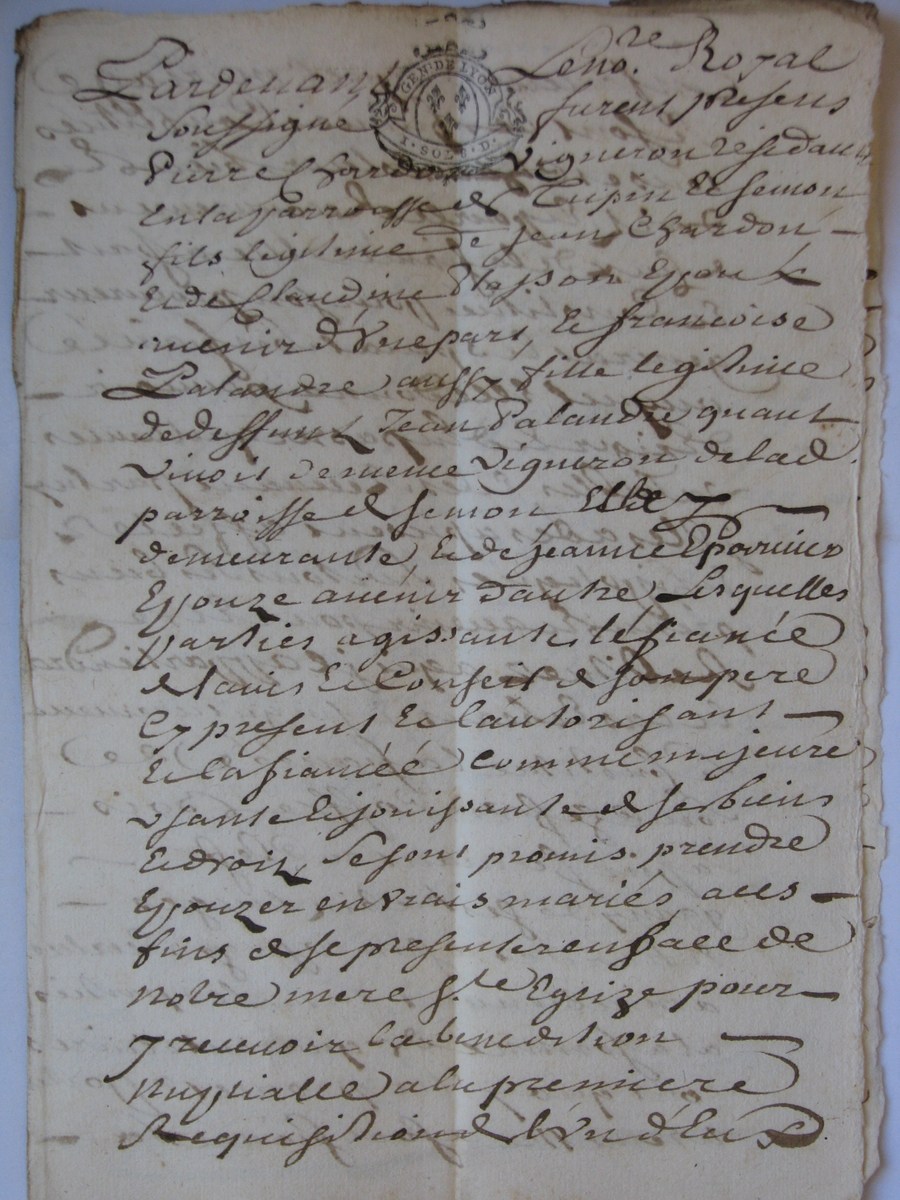 Pardevant Le no.re Royal
GEN. DE LYON
I. SOL 8. D.
Soussigné furent presens
Pierre Chardon Vigneron residant
En la parroisse de Tupin & semon
fils legitime de Jean Chardon
& de Claudine Epoux
avenir d'Une part, & francoise
Palandre aussy fille legitime
de deffunt Jean Palandre quant
vivoit de meme vigneron de lad.
parroisse de semon Elle y
demeurante, & de Jeanne
Epouze avenir d'autre Lesquelles
parties agissante le fiancé
de l'avis & Conseil de son pere
Cy present & l'autorisant
& la fiancéé comme mejeure
usante & jouissante de ses biens
& droits, se sont promis prendre
Epouzer en vrais mariés, a ces
fins de se presenter en face de
notre mere S.te Eglize pour
y recevoir la benedition
nuptialle a la premiere
Requisition de l'Un d'Eux